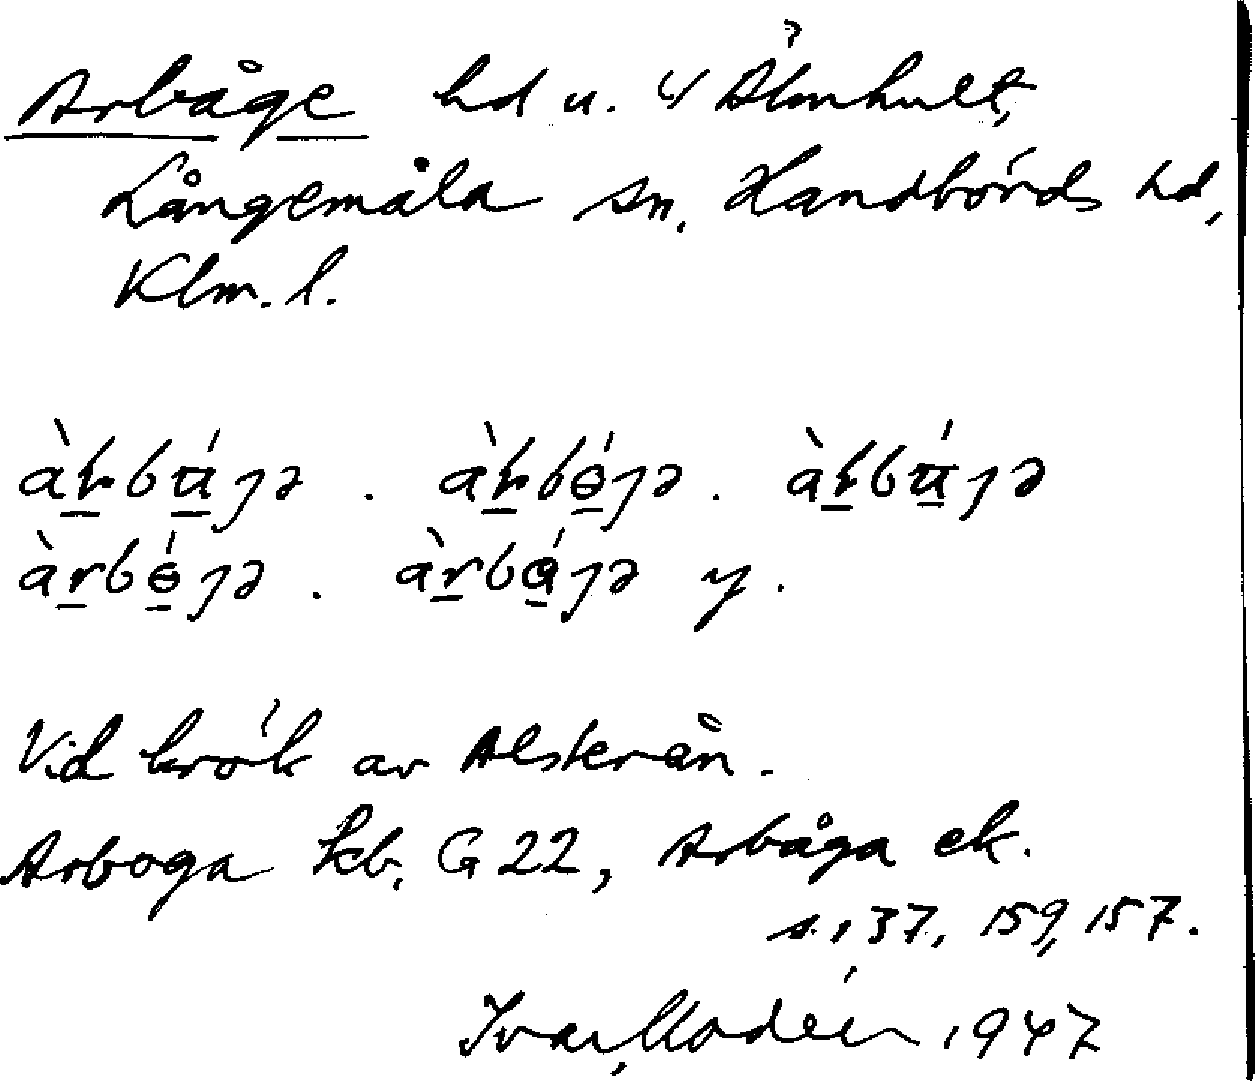 Arbåge hd u. 4 Älmhult,
Långemåla sn. Handbörds hd,
Klm. l.
àrbɯ́ȷə . àrbɵ́ȷə . àrbɯ́ȷə
àrbɵ́ȷə . àrbáȷə y.
Vid krök av Alsterån.
Arboga kb. G 22, Arbåga ek.
s. 137, 159, 157.
Ivar Modéer 1947